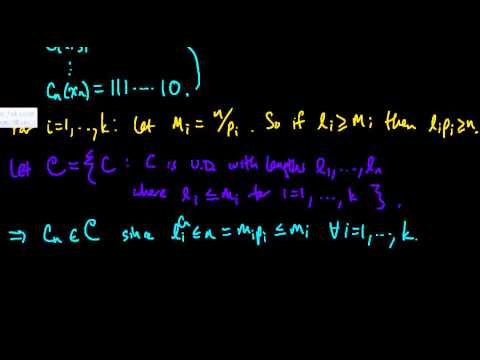 ⋮
Cₙ(xₙ) = 111 ⋯ 10.
For i=1,..,k: Let Mᵢ = n/pᵢ. So if lᵢ ≥ Mᵢ then lᵢpᵢ ≥ n.
Let C = { C : C is U.D. with lengths l₁, ..., lₙ
where lᵢ ≤ mᵢ for i=1, ..., k }.
⇒ Cₙ ∈ C since lᵢ^Cₙ ≤ n = mᵢpᵢ ≤ mᵢ ∀ i=1, ..., k.